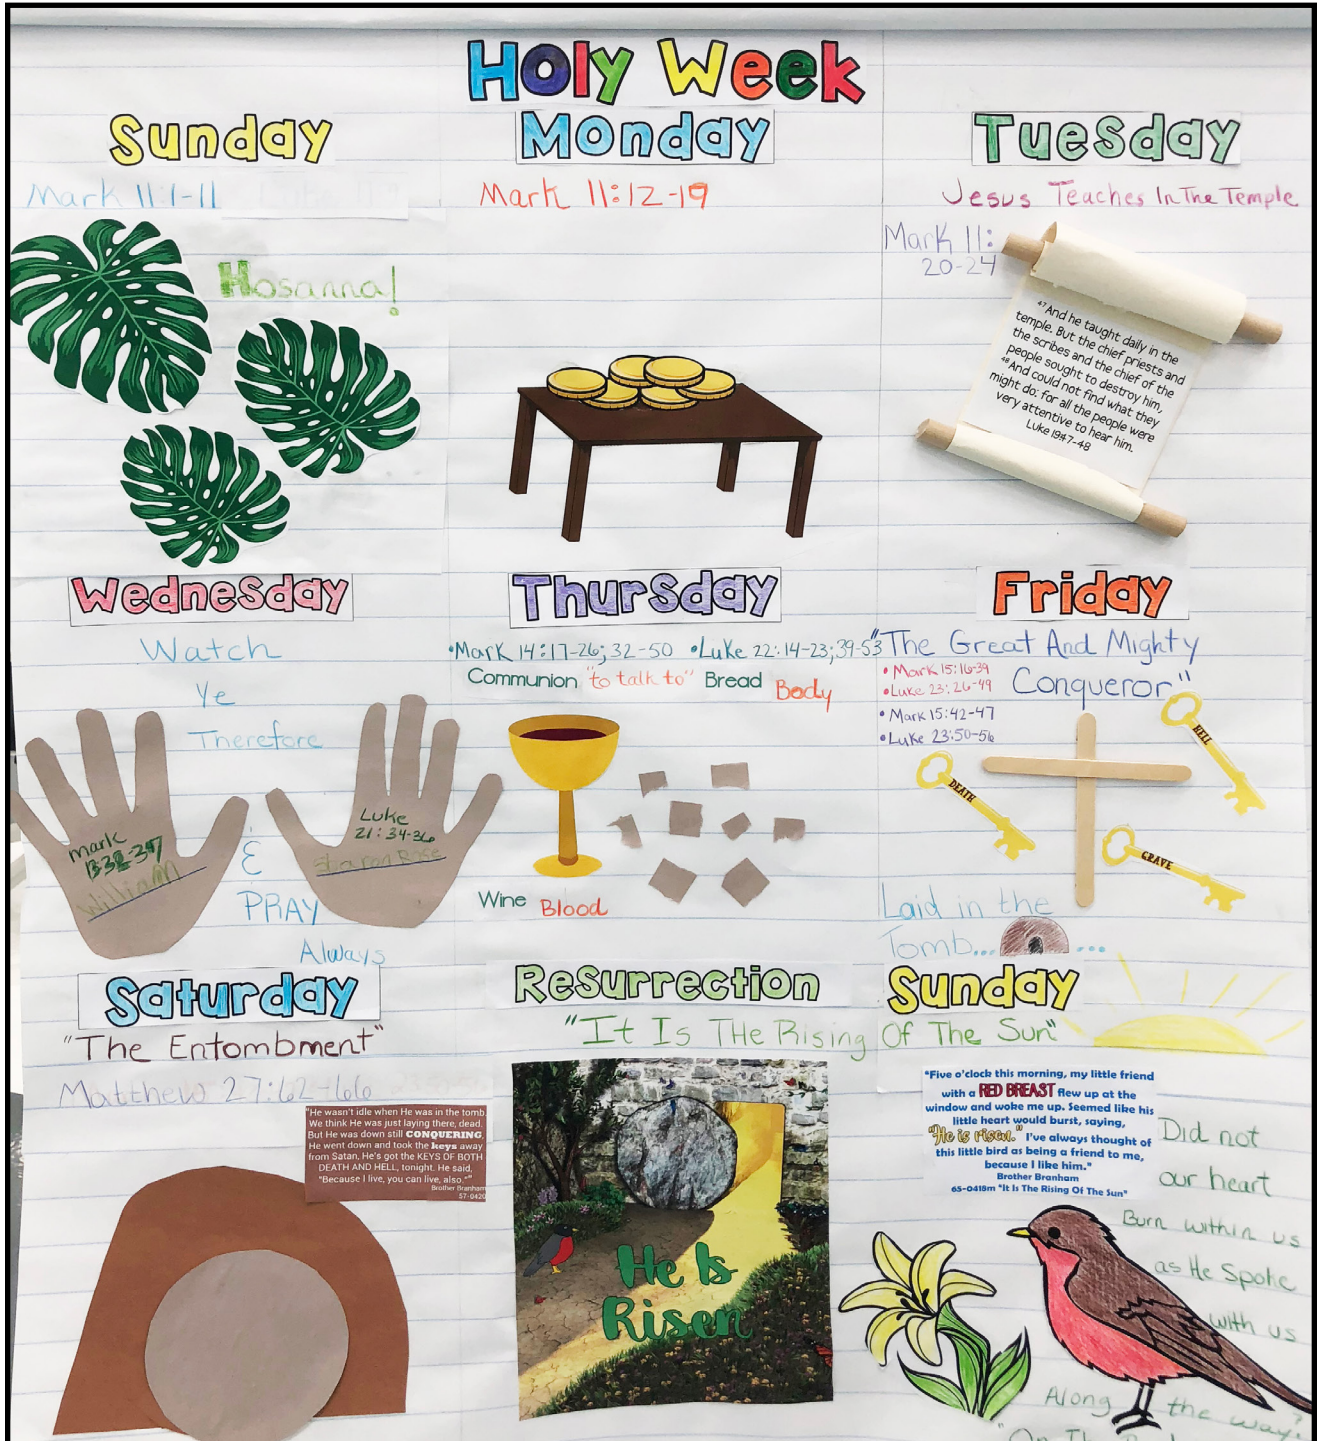 Holy Week
Sunday
Mark 11:1-11
Hosanna!
Monday
Mark 11:12-19
Tuesday
Jesus Teaches In The Temple
Mark 11:
20-24
47 And he taught daily in the
temple. But the chief priests and
the scribes and the chief of the
people sought to destroy him,
48 And could not find what they
might do: for all the people were
very attentive to hear him.
Luke 19:47-48
Wednesday
Watch
Ye
Therefore
&
PRAY
Always
Mark
William
Luke
21:34-36
Sharon Rose
Thursday
•Mark 14:17-26; 32-50 •Luke 22:14-23; 39-53
Communion "to talk to" Bread Body
Wine Blood
Friday
"The Great And Mighty
Conqueror"
• Mark 15:16-39
• Luke 23:26-49
• Mark 15:42-47
• Luke 23:50-56
DEATH
HELL
GRAVE
Laid in the
Tomb... ...
Saturday
"The Entombment"
Matthew 27:62-66
"He wasn't idle when He was in the tomb.
We think He was just laying there, dead.
But He was down still CONQUERING.
He went down and took the keys away
from Satan, He's got the KEYS OF BOTH
DEATH AND HELL, tonight. He said,
"Because I live, you can live, also.""
Brother Branham
57-0420
Resurrection Sunday
"It Is THe Rising Of The Sun"
He Is
Risen
"Five o'clock this morning, my little friend
with a RED BREAST flew up at the
window and woke me up. Seemed like his
little heart would burst, saying,
"He is risen." I've always thought of
this little bird as being a friend to me,
because I like him."
Brother Branham
65-0418m "It Is The Rising Of The Sun"
Did not
our heart
Burn within us
as He Spoke
with us
Along the way?